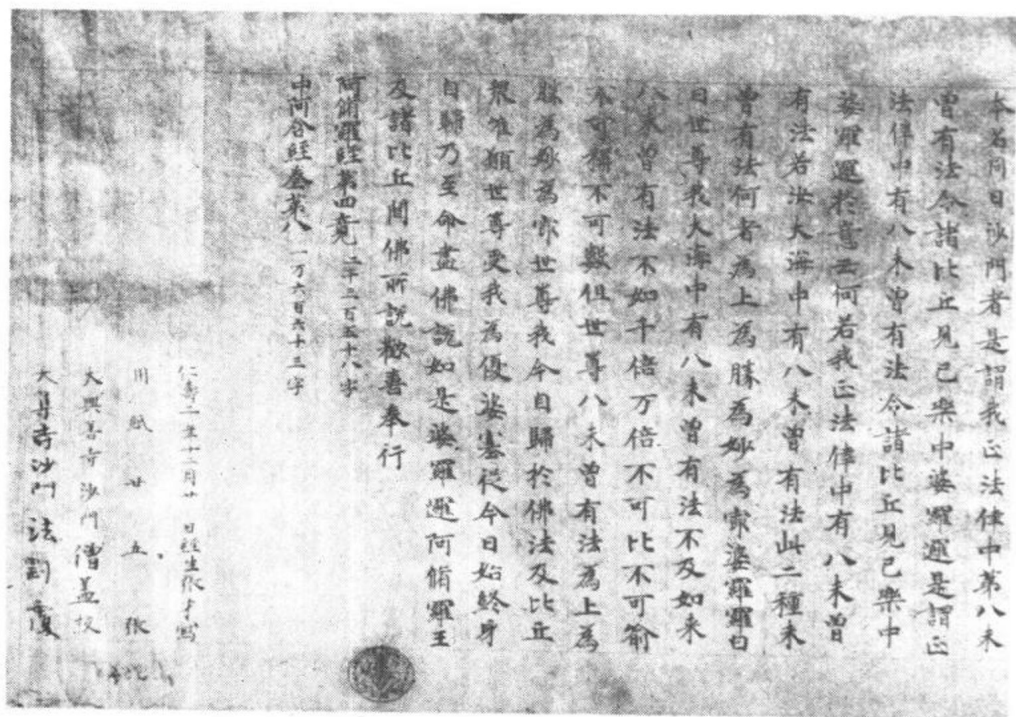 本名同曰沙門者是謂我正法律中第八未
曾有法令諸比丘見已樂中婆羅邏是謂正
法律中有八未曾有法令諸比丘見已樂中
婆羅邏於意云何若我正法律中有八未曾
有法若汝大海中有八未曾有法此二種未
曾有法何者為上為勝為妙為㝡婆羅邏白
曰世尊我大海中有八未曾有法不及如来
八未曾有法不如千倍万倍不可比不可喻
不可稱不可數但世尊八未曾有法為上為
勝為妙為㝡世尊我今自歸於佛法及比丘
衆唯願世尊受我為優婆塞從今日始終身
自歸乃至命盡佛說如是婆羅邏阿脩羅王
及諸比丘聞佛所說歡喜奉行
阿脩羅經第四竟 二千二百五十八字
中阿含經卷第八 一万六百六十三字
仁壽二年十二月廿 日經生張才寫
用紙廿五張
大興善寺沙門僧蓋校
大集寺沙門法剛覆